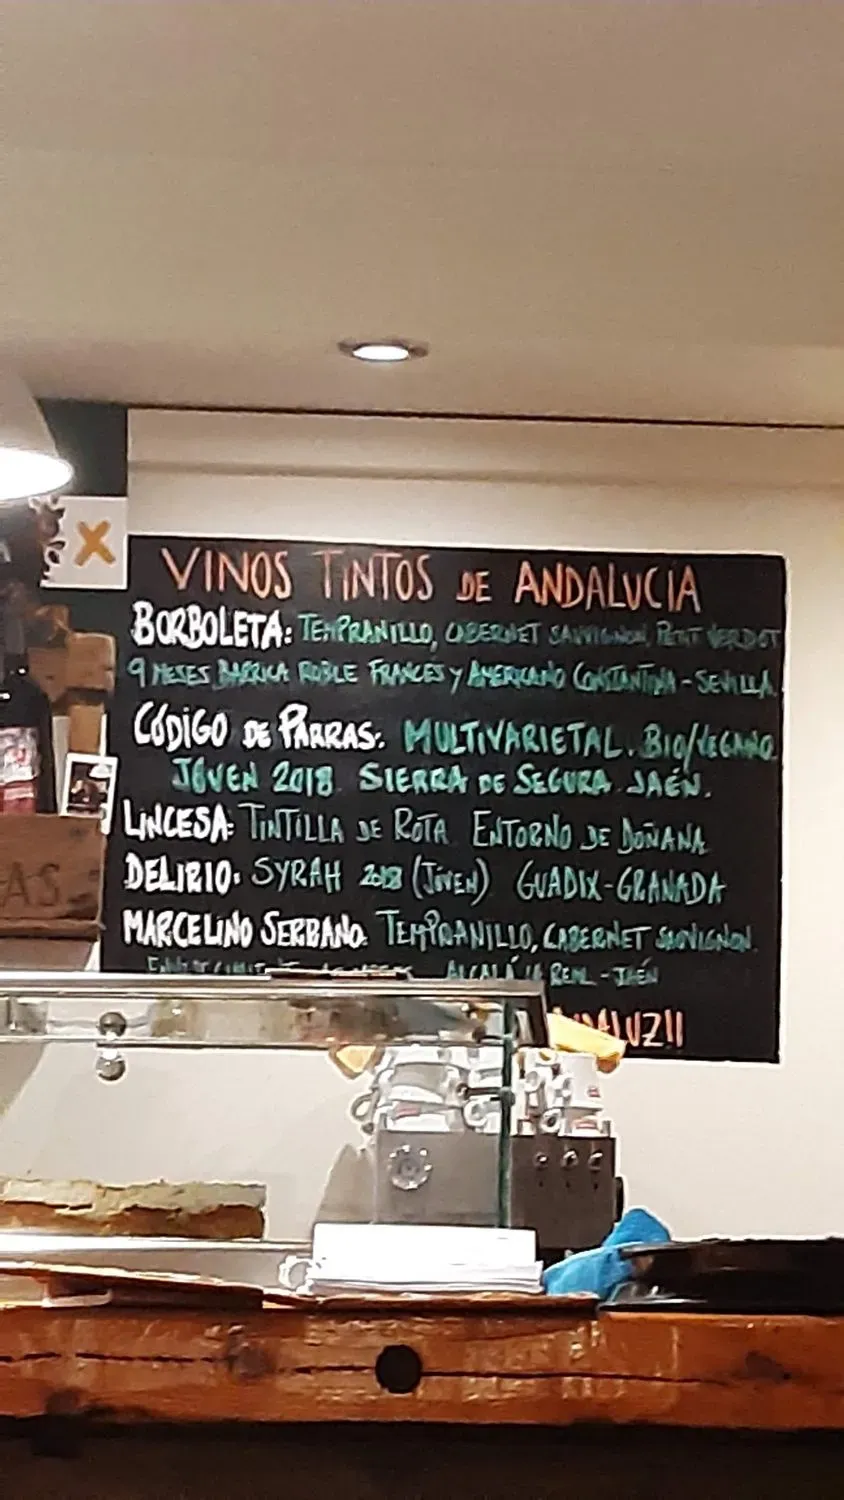 VINOS TINTOS DE ANDALUCÍA
BORBOLETA: TEMPRANILLO, CABERNET SAUVIGNON, PETIT VERDOT
9 MESES BARRICA ROBLE FRANCES Y AMERICANO CONSTANTINA - SEVILLA
CÓDIGO DE PARRAS: MULTIVARIETAL. BIO/VEGANO
JOVEN 2018 SIERRA DE SEGURA JAÉN.
LINCESA: TINTILLA DE ROTA ENTORNO DE DOÑANA
DELIRIO: SYRAH 2018 (JOVEN) GUADIX-GRANADA
MARCELINO SERRANO: TEMPRANILLO, CABERNET SAUVIGNON.
ALCALÁ LA REAL - JAÉN
AS
X